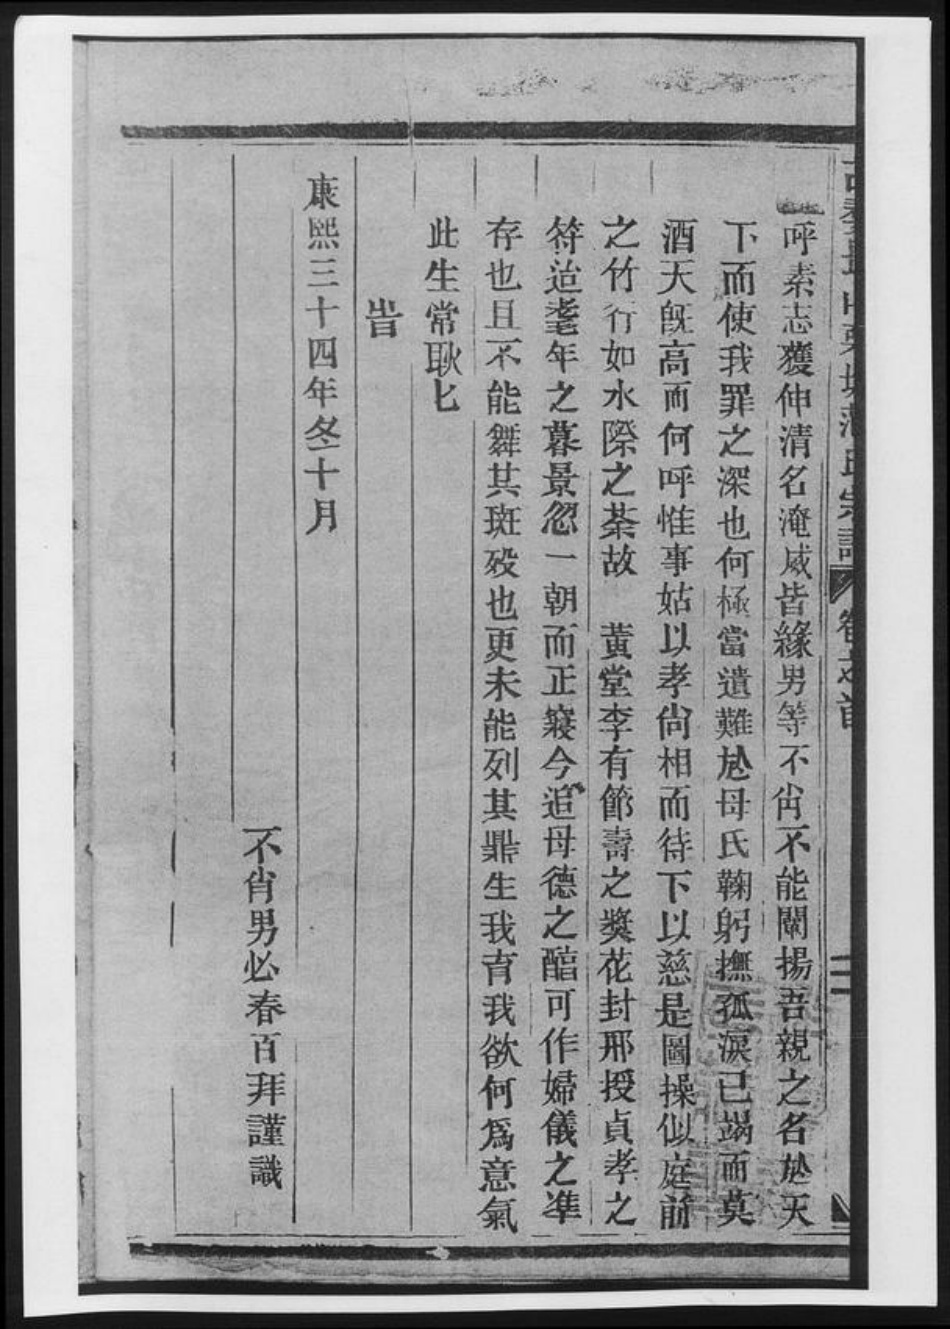 呼素志獲伸清名淹威皆緣男等不肖不能闡揚吾親之名於天
下而使我罪之深也何極當遺難於母氏鞠躬撫孤淚已竭而莫
酒天旣高而何呼惟事姑以孝尙相而待下以慈是圖操似庭前
之竹行如水際之荼故 黃堂李有節壽之奬花封邢授貞孝之
符迨耄年之暮景忽一朝而正寢今追母德之醕可作婦儀之準
存也且不能舞其斑歿也更未能列其鼎生我育我欲何爲意氣
此生常耿匕
旹
康熙三十四年冬十月
不肖男必春百拜謹識
氏宗譜 卷之首